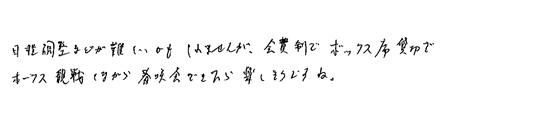 日程調整などが難しいかもしれませんが、会費制でボックス席貸切で
ホークス観戦しながら春咲会できたら楽しそうですね。